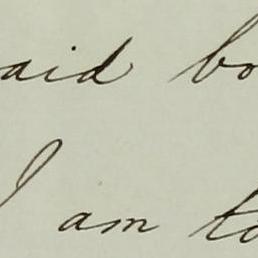 aid bo
I am to